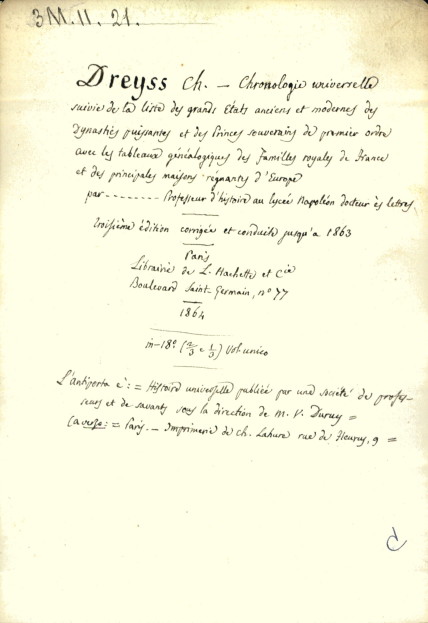 3M.II.21.
Dreyss Ch. — Chronologie universelle
suivie de la liste des grands Etats anciens et modernes des
dynasties puissantes et des Princes souverains de premier ordre
avec les tableaux généalogiques des Familles royales de France
et des principales maisons régnantes d'Europe
par -------- Professeur d'histoire au lycée Napoléon docteur ès lettres
troisième édition corrigée et conduite jusqu'a 1863
Paris
Librairie de L. Hachette et Cie
Boulevard Saint-Germain, nº 77
1864
in-18º (2/3 e 1/3) Vol. unico
L'antiporta è: = Histoire universelle publiée par une société de profes-
seurs et de savants sous la direction de M. V. Duruy =
(a verso: = Paris. — Imprimerie de Ch. Lahure rue de Fleurus, 9 =